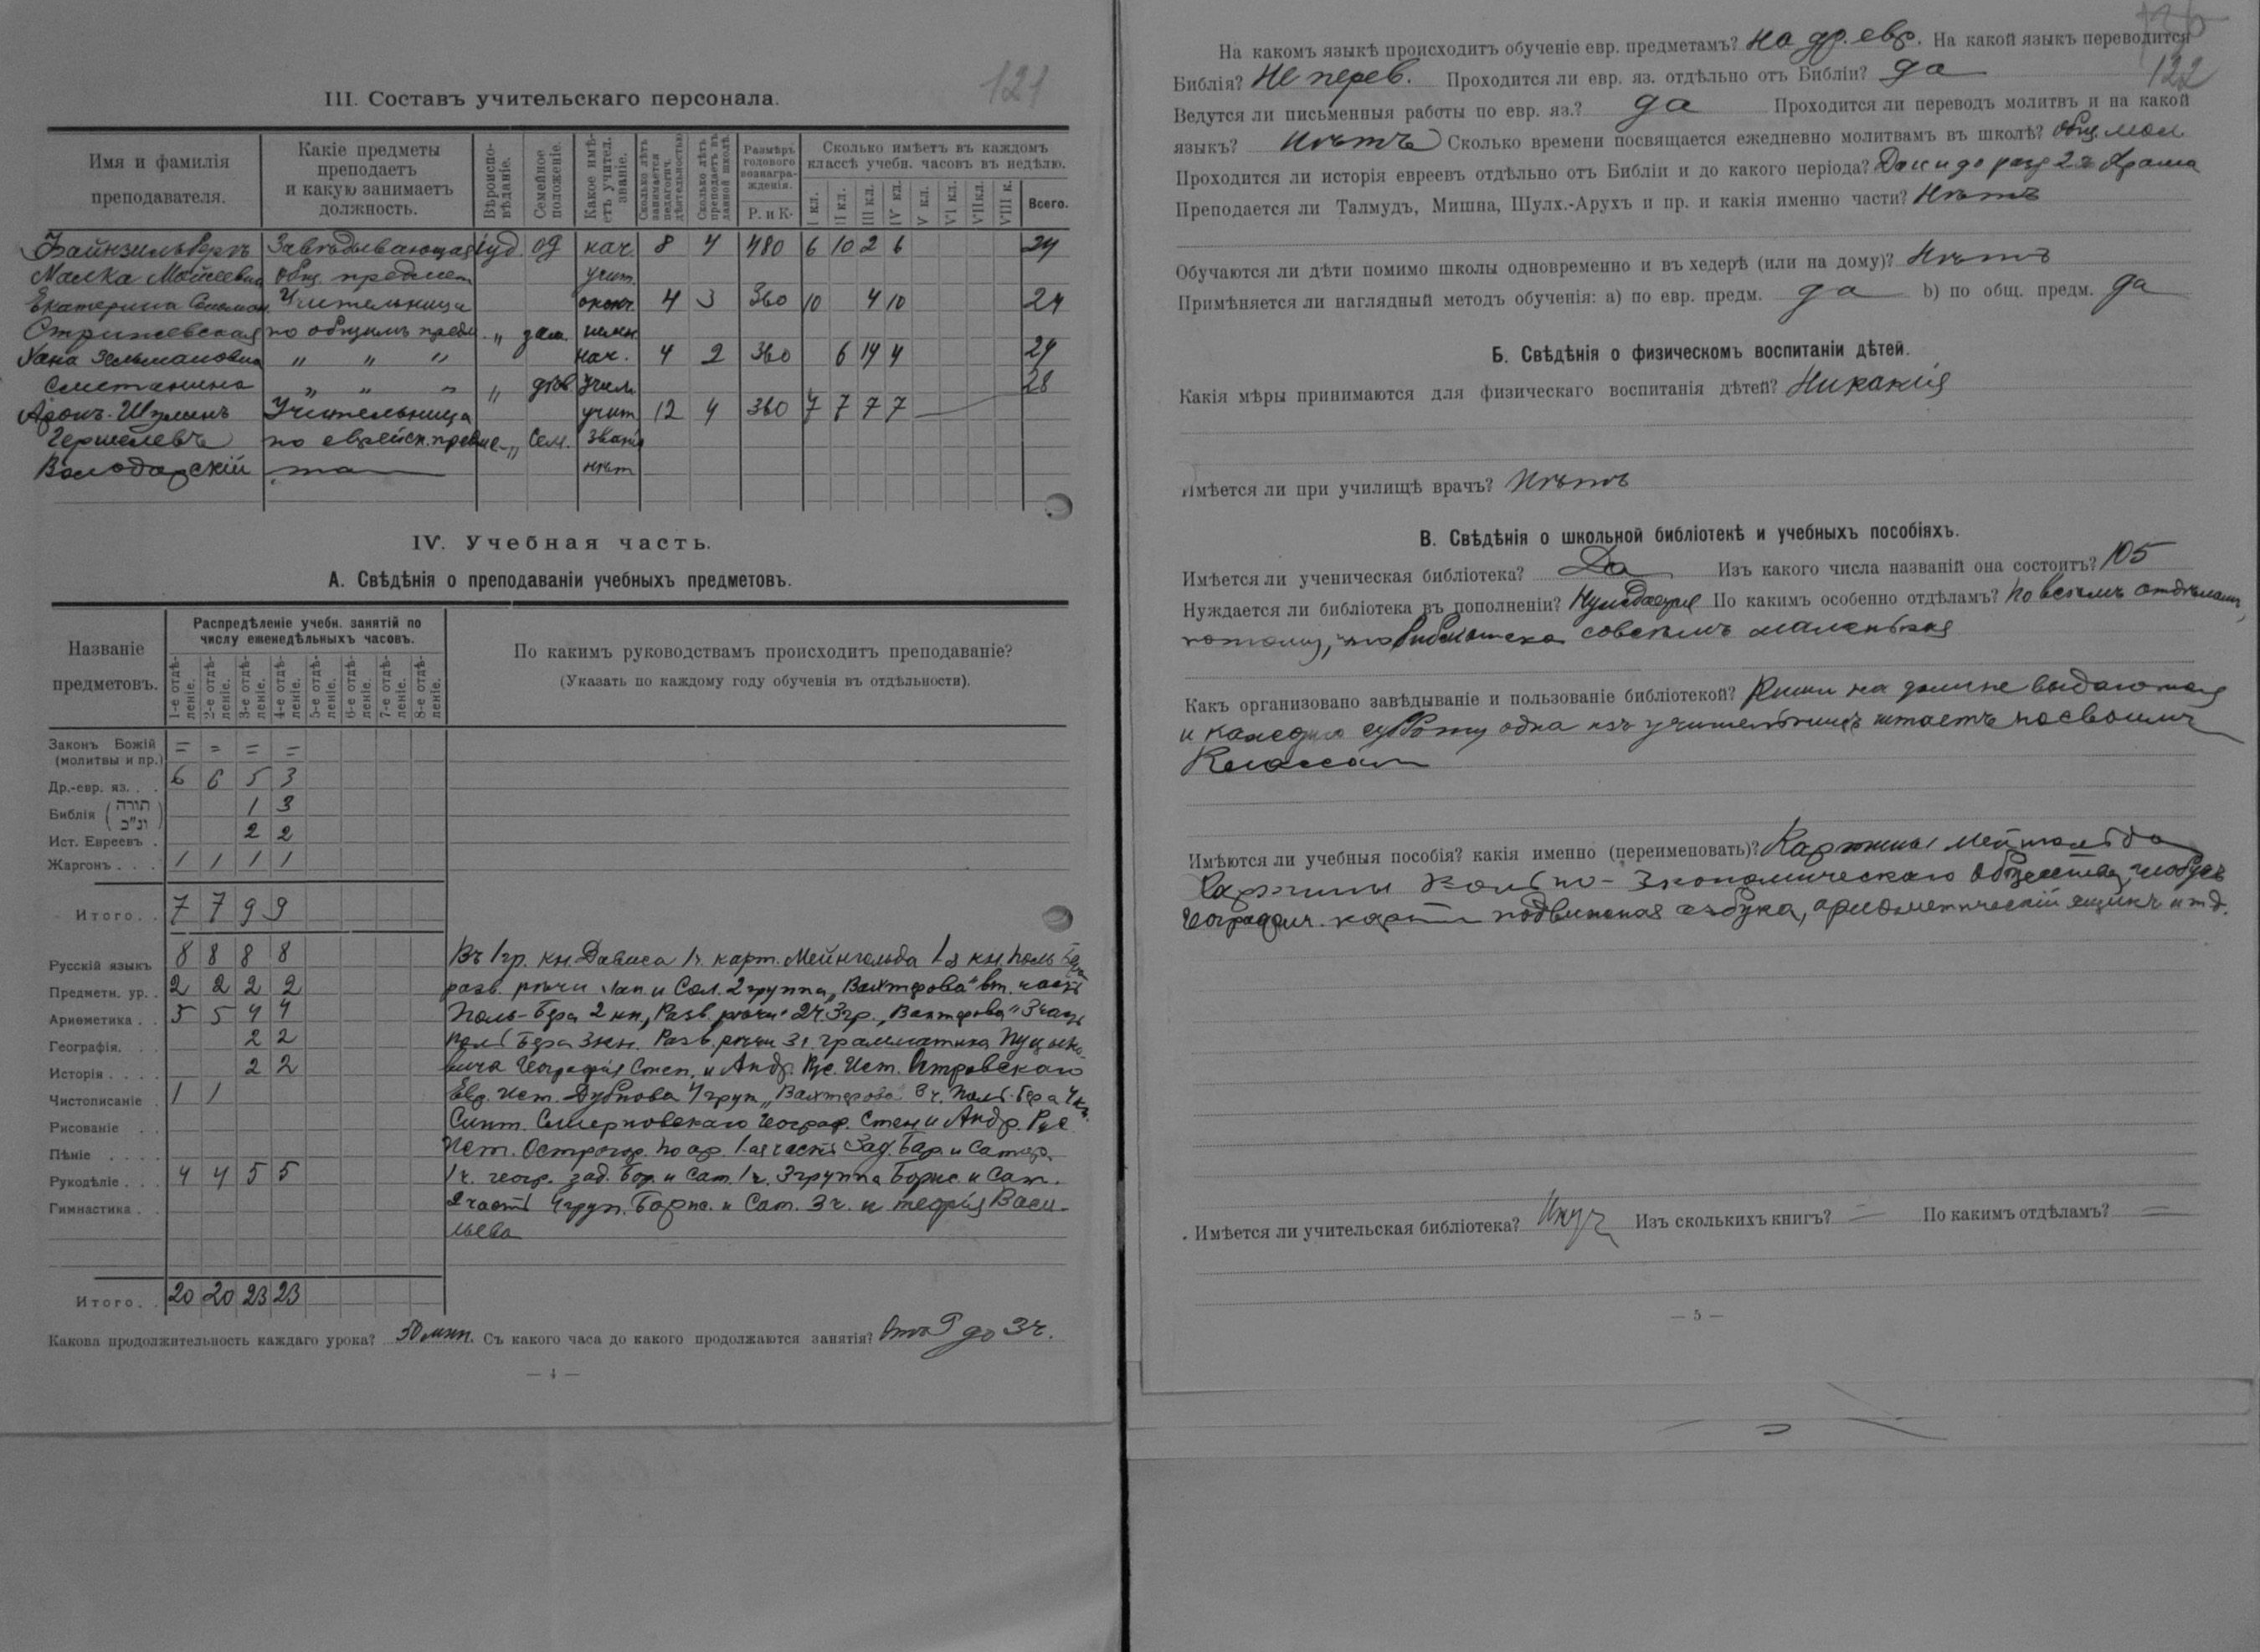 121
III. Составъ учительскаго персонала.
Имя и фамилія преподавателя.
Какіе предметы преподаетъ и какую занимаетъ должность.
Вѣроиспо-вѣданіе.
Семейное положеніе.
Какое имѣ-етъ учител. званіе.
Сколько лѣтъ занимается педагогич. дѣятельностью
Сколько лѣтъ преподаетъ въ данной школѣ.
Размѣръ годового вознагра-жденія.
Р. и К.
Сколько имѣетъ въ каждомъ классѣ учебн. часовъ въ недѣлю.
I кл. II кл. III кл. IV кл. V кл. VI кл. VII кл. VIII к. Всего.
Файнзильбергъ Завѣдывающая іуд. од нач. 8 4 480 6 10 2 6 24
Малка Мойсеевна общ. предмет учит.
Екатерина Соломон. Учительница оконч. 4 3 360 10 4 10 24
Стрижевская по общимъ предм „ зам. гимн.
Хана Зельмановна „ „ „ нач. 4 2 360 6 14 4 24
Сметанина „ „ „ „ дѣв. Учит 28
Аронъ-Шулимъ Учительница учит 12 4 360 7 7 7 7
Гершелевъ по еврейск. предме- „ Сем. званія
Володарскій та нѣт
IV. Учебная часть.
А. Свѣдѣнія о преподаваніи учебныхъ предметовъ.
Названіе предметовъ.
Распредѣленіе учебн. занятій по числу еженедѣльныхъ часовъ.
1-е отдѣ-леніе. 2-е отдѣ-леніе. 3-е отдѣ-леніе. 4-е отдѣ-леніе. 5-е отдѣ-леніе. 6-е отдѣ-леніе. 7-е отдѣ-леніе. 8-е отдѣ-леніе.
По какимъ руководствамъ происходитъ преподаваніе?
(Указать по каждому году обученія въ отдѣльности).
Законъ Божій = = = =
(молитвы и пр.)
Др.-евр. яз. . . 6 6 5 3
Библія (תורה ונ"כ) 1 3
Ист. Евреевъ . 2 2
Жаргонъ . . . 1 1 1 1
Итого. . 7 7 9 9
Русскій языкъ 8 8 8 8 Въ 1 гр. кн. Дависа 1ч. карт. Мейнгольда 1я кн. Поль Бера
Предметн. ур. . 2 2 2 2 разв. рѣчи и Сол. 2 группа „Вахтерова" вт. часть
Ариѳметика . . 5 5 4 4 Поль-Бера 2 кн., Разв. рѣчи 2ч. 3гр. „Вахтерова" 3 часть
Географія. . . 2 2 Поль Бера 3 кн. Разв. рѣчи 3ч. грамматика Пуцыко-
Исторія . . . . 2 2 вича Географія Степ. и Андр. Рус. Ист. Островскаго
Чистописаніе . 1 1 Евр. Ист. Дубнова 4 груп „Вахтерова" 3 ч. Поль-Бера 4 кн.
Рисованіе . . Синт. Смирновскаго Географ. Степ и Андр. Рус
Пѣніе . . . . Ист. Острогор. по ар. 1-ая часть Зад. Бар. и Сатар.
Рукодѣліе . . . 4 4 5 5 1ч. геогр. зад. Бор. и Сат. 1ч. 3 группа Борис. и Сат.
Гимнастика . . 2 часть 4 груп. Борис. и Сат. 3 ч. и теорія Васи-
льева
Итого. . 20 20 23 23
Какова продолжительность каждаго урока? 50 мин. Съ какого часа до какого продолжаются занятія? Отъ 9 до 3 ч.
— 4 —
122
На какомъ языкѣ происходитъ обученіе евр. предметамъ? на др. евр. На какой языкъ переводится
Библія? Не перев. Проходится ли евр. яз. отдѣльно отъ Библіи? да
Ведутся ли письменныя работы по евр. яз.? да Проходится ли переводъ молитвъ и на какой
языкъ? Нѣтъ Сколько времени посвящается ежедневно молитвамъ въ школѣ? общ. мол
Проходится ли исторія евреевъ отдѣльно отъ Библіи и до какого періода? Да и до раз 2я Храма
Преподается ли Талмудъ, Мишна, Шулх.-Арухъ и пр. и какія именно части? Нѣтъ
Обучаются ли дѣти помимо школы одновременно и въ хедерѣ (или на дому)? Нѣтъ
Примѣняется ли наглядный методъ обученія: а) по евр. предм. да b) по общ. предм. да
Б. Свѣдѣнія о физическомъ воспитаніи дѣтей.
Какія мѣры принимаются для физическаго воспитанія дѣтей? Никакія
Имѣется ли при училищѣ врачъ? Нѣтъ
В. Свѣдѣнія о школьной библіотекѣ и учебныхъ пособіяхъ.
Имѣется ли ученическая библіотека? Да Изъ какого числа названій она состоитъ? 105
Нуждается ли библіотека въ пополненіи? Нуждается По какимъ особенно отдѣламъ? По всѣмъ отдѣламъ,
потому, что библіотека совсѣмъ маленькая
Какъ организовано завѣдываніе и пользованіе библіотекой? Книги на домъ не выдаются
и каждую субботу одна изъ учительницъ читаетъ по своимъ
Классам
Имѣются ли учебныя пособія? какія именно (переименовать)? Картины Мейнгольда
Картины Вольно-Экономическаго Общества, глобусъ
Географич. карты подвижная азбука, ариѳметическій ящикъ и т.д.
Имѣется ли учительская библіотека? Изъ сколькихъ книгъ? = По какимъ отдѣламъ? =
— 5 —